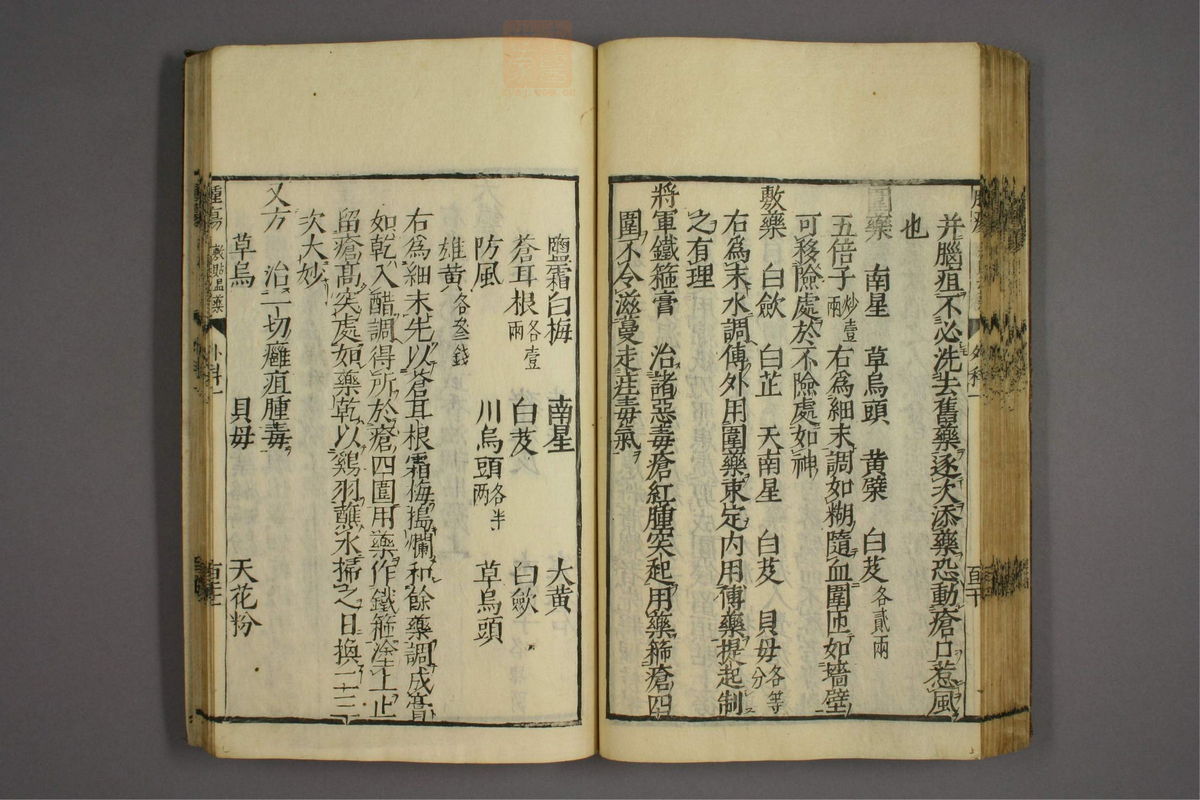 并腦疽不必洗去舊藥逐次添藥恐動瘡口惹風
也
圍藥 南星 草烏頭 黄檗 白芨各貳兩
五倍子炒壹兩 右為細末調如糊隨血圍匝如墻壁
可移險處於不險處如神
敷藥 白歛 白芷 天南星 白芨 貝母各等分
右為末水調傅外用圍藥束定内用傅藥提起制
之有理
將軍鐵箍膏 治諸惡毒瘡紅腫突起用藥箍瘡四
圍不令滋蔓走疰毒氣
鹽霜白梅 南星 大黄
蒼耳根各壹兩 白芨 白歛
防風 川烏頭各半兩 草烏頭
雄黄各叁錢
右為細末先以蒼耳根霜梅搗爛和餘藥調成膏
如乾入醋調得所於瘡四圍用藥作鐵箍塗上止
留瘡高突處如藥乾以鷄羽蘸水掃之日換二三
次大妙
又方 治一切癰疽腫毒
草烏 貝母 天花粉
腫瘍 敷貼温藥 外科一